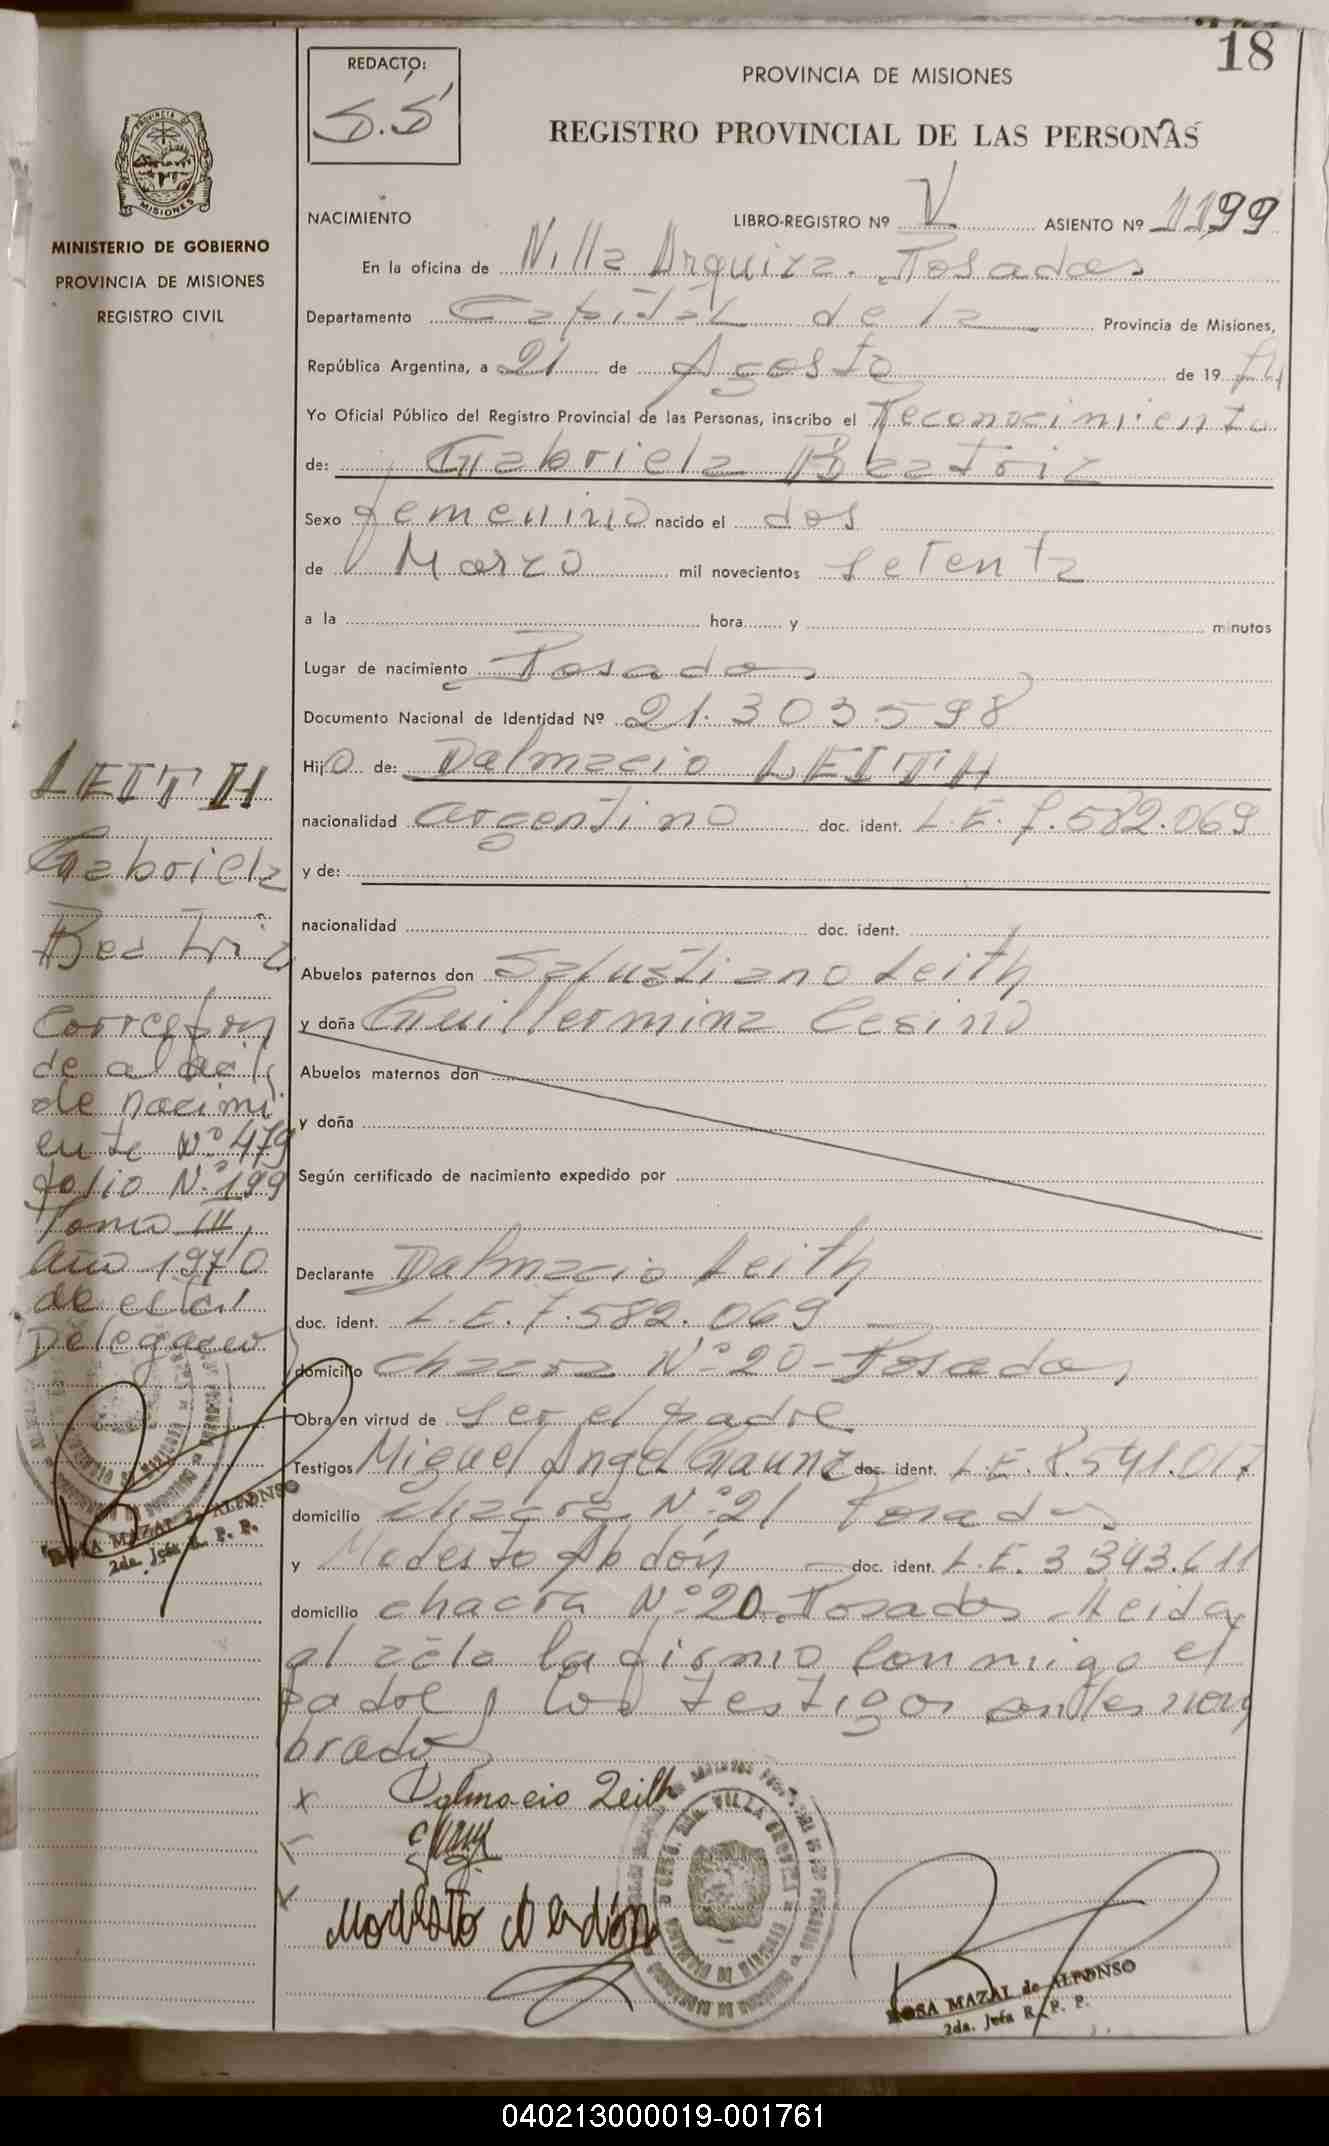 18
REDACTO:
S.S
PROVINCIA DE MISIONES
REGISTRO PROVINCIAL DE LAS PERSONAS
MISIONES
MINISTERIO DE GOBIERNO
PROVINCIA DE MISIONES
REGISTRO CIVIL
NACIMIENTO LIBRO-REGISTRO Nº V ASIENTO Nº 1199
En la oficina de Villa Urquiza. Posadas
Departamento Capital de la Provincia de Misiones,
República Argentina, a 21 de Agosto de 19
Yo Oficial Público del Registro Provincial de las Personas, inscribo el Reconocimiento
de: Gabriela Beatriz
Sexo femenino nacido el dos
de Marzo mil novecientos setenta
a la hora y minutos
Lugar de nacimiento Posadas
Documento Nacional de Identidad Nº 21.303.598
Hijo de: Dalmacio LEITH
nacionalidad argentino doc. ident. L.E. 7.582.069
y de:
nacionalidad doc. ident.
Abuelos paternos don Salustiano Leith
y doña Guillermina Cesino
Abuelos maternos don
y doña
Según certificado de nacimiento expedido por
Declarante Dalmacio Leith
doc. ident. L.E. 7.582.069
domicilio chacra Nº 20 - Posadas
Obra en virtud de ser el padre
Testigos Miguel Angel Gauna doc. ident. L.E. 8.541.017
domicilio chacra Nº 21 Posadas
y Modesto Abdón doc. ident. L.E. 3 343.611
domicilio chacra Nº 20. Posadas Leida
el acta la firma conmigo el
padre y los testigos antes nom
brados
x Dalmacio Leith
Modesto Abdón
ROSA MAZAL de ALFONSO
2da. Jefa R. P. P.
LEITH
Gabriela
Beatriz
Correspon
de al acta
de nacimi
ento Nº 479
folio Nº 199
Tomo III,
Año 1970
de esta
Delegación
ROSA MAZAL de ALFONSO
2da. Jefa R. P. P.
040213000019-001761